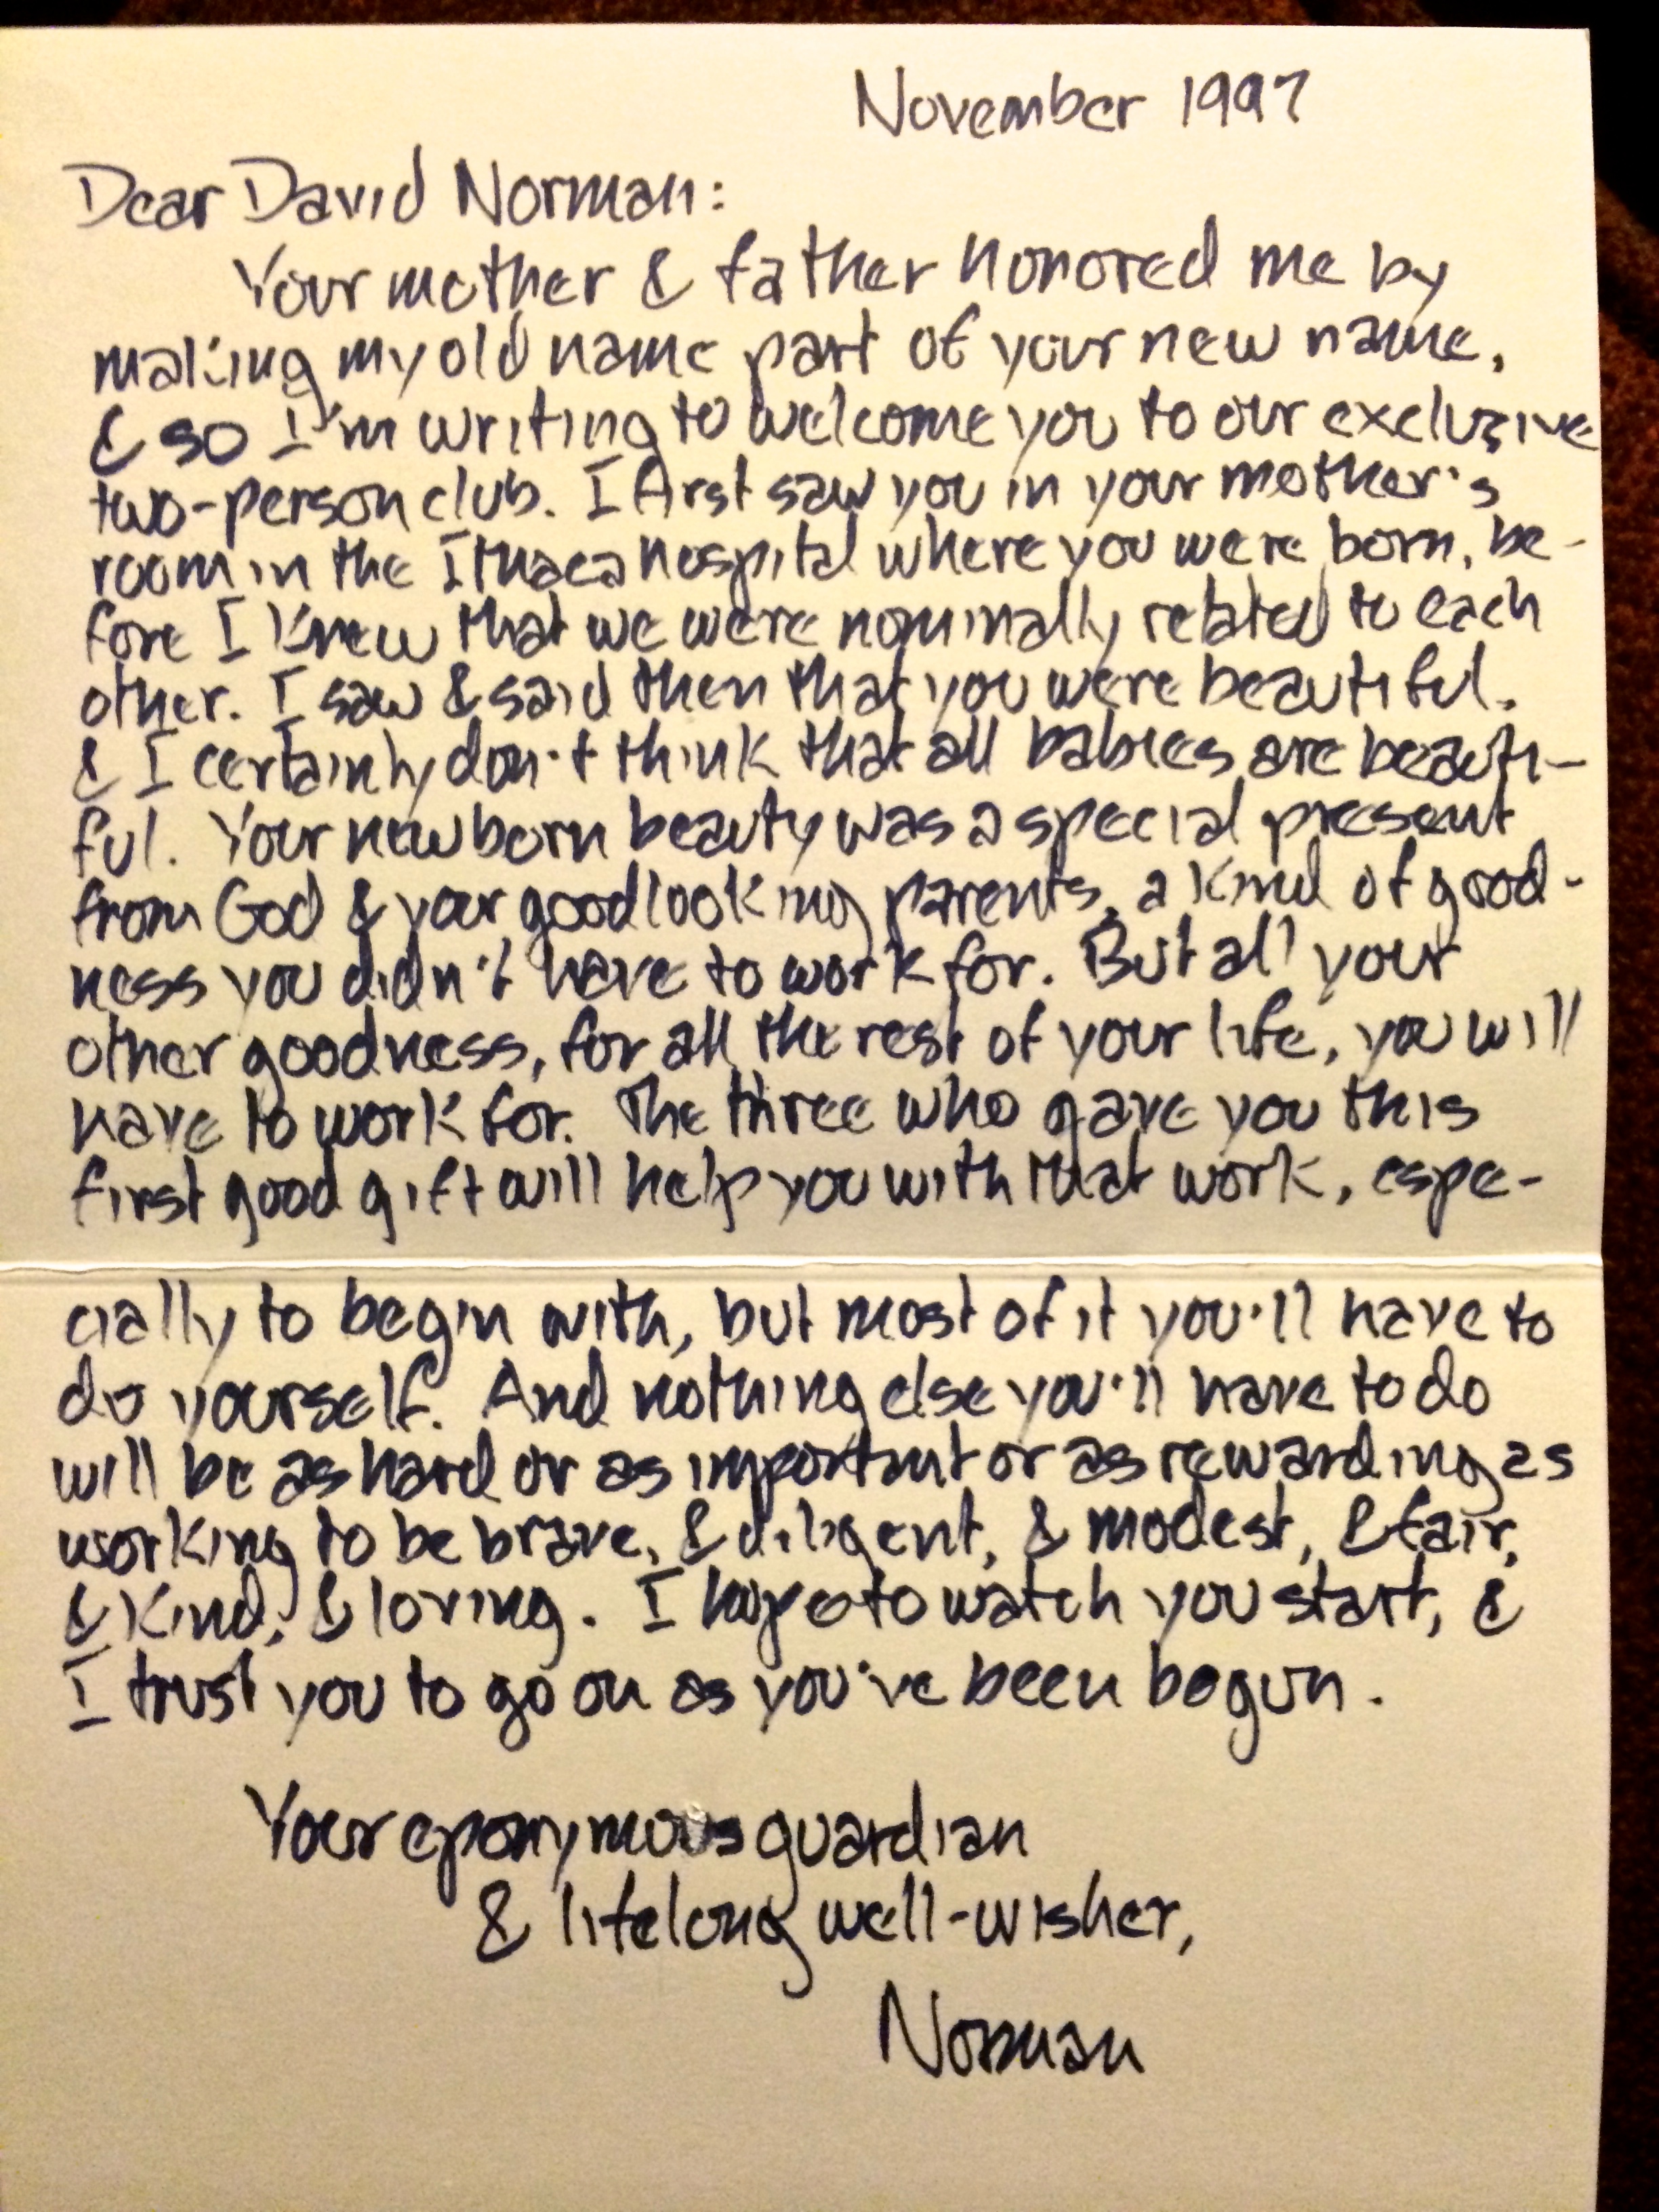 November 1997
Dear David Norman:
Your mother & father honored me by
making my old name part of your new name,
& so I'm writing to welcome you to our exclusive
two-person club. I first saw you in your mother's
room in the Ithaca hospital where you were born, be-
fore I knew that we were nominally related to each
other. I saw & said then that you were beautiful.
& I certainly don't think that all babies are beauti-
ful. Your newborn beauty was a special present
from God & your goodlooking parents, a kind of good-
ness you didn't have to work for. But all your
other goodness, for all the rest of your life, you will
have to work for. The three who gave you this
first good gift will help you with that work, espe-
cially to begin with, but most of it you'll have to
do yourself. And nothing else you'll have to do
will be as hard or as important or as rewarding as
working to be brave, & diligent, & modest, & fair,
& kind, & loving. I hope to watch you start, &
I trust you to go on as you've been begun.
Your eponymous guardian
& lifelong well-wisher,
Norman